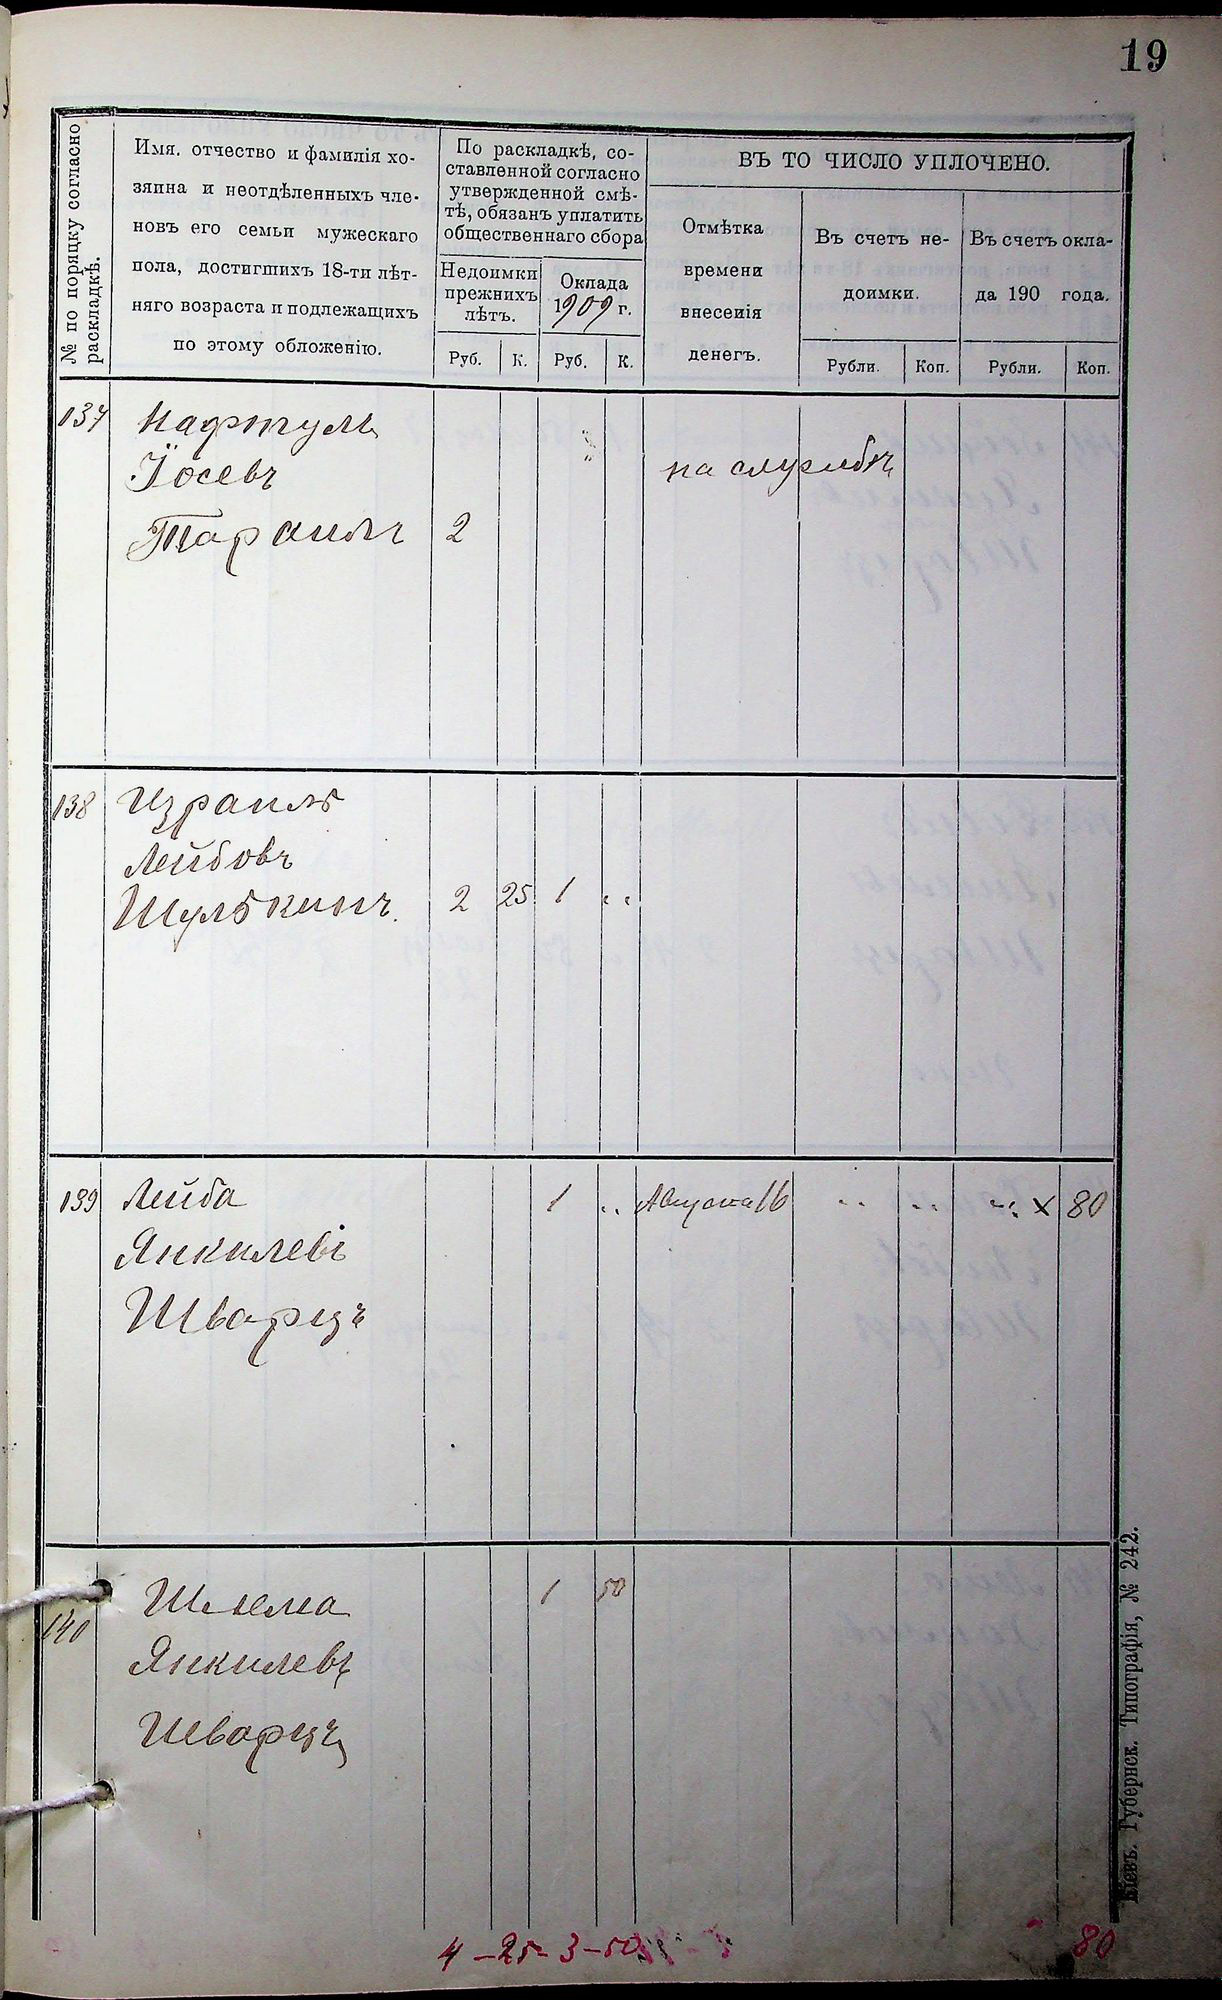 19
№ по порядку согласно
раскладкѣ.
Имя, отчество и фамилія хо-
зяина и неотдѣленныхъ чле-
новъ его семьи мужескаго
пола, достигшихъ 18-ти лѣт-
няго возраста и подлежащихъ
по этому обложенію.
По раскладкѣ, со-
ставленной согласно
утвержденной смѣ-
тѣ, обязанъ уплатить
общественнаго сбора
Недоимки
прежнихъ
лѣтъ.
Оклада
1909 г.
Руб. К. Руб. К.
ВЪ ТО ЧИСЛО УПЛОЧЕНО.
Отмѣтка
времени
внесенія
денегъ.
Въ счетъ не-
доимки.
Въ счетъ окла-
да 190 года.
Рубли. Коп. Рубли. Коп.
137 Нафтуль
Іосевъ на службѣ
2
138 Израиль
Лейбовъ
Шулькинъ 2 25 1 ..
139 Лейба 1 .. Августа 16 .. .. .. х 80
Янкилевъ
Шварцъ
140 Шлема 1 50
Янкилевъ
Шварцъ
4 – 25 – 3 – 50 80
Кіевъ. Губернск. Типографія, № 242.